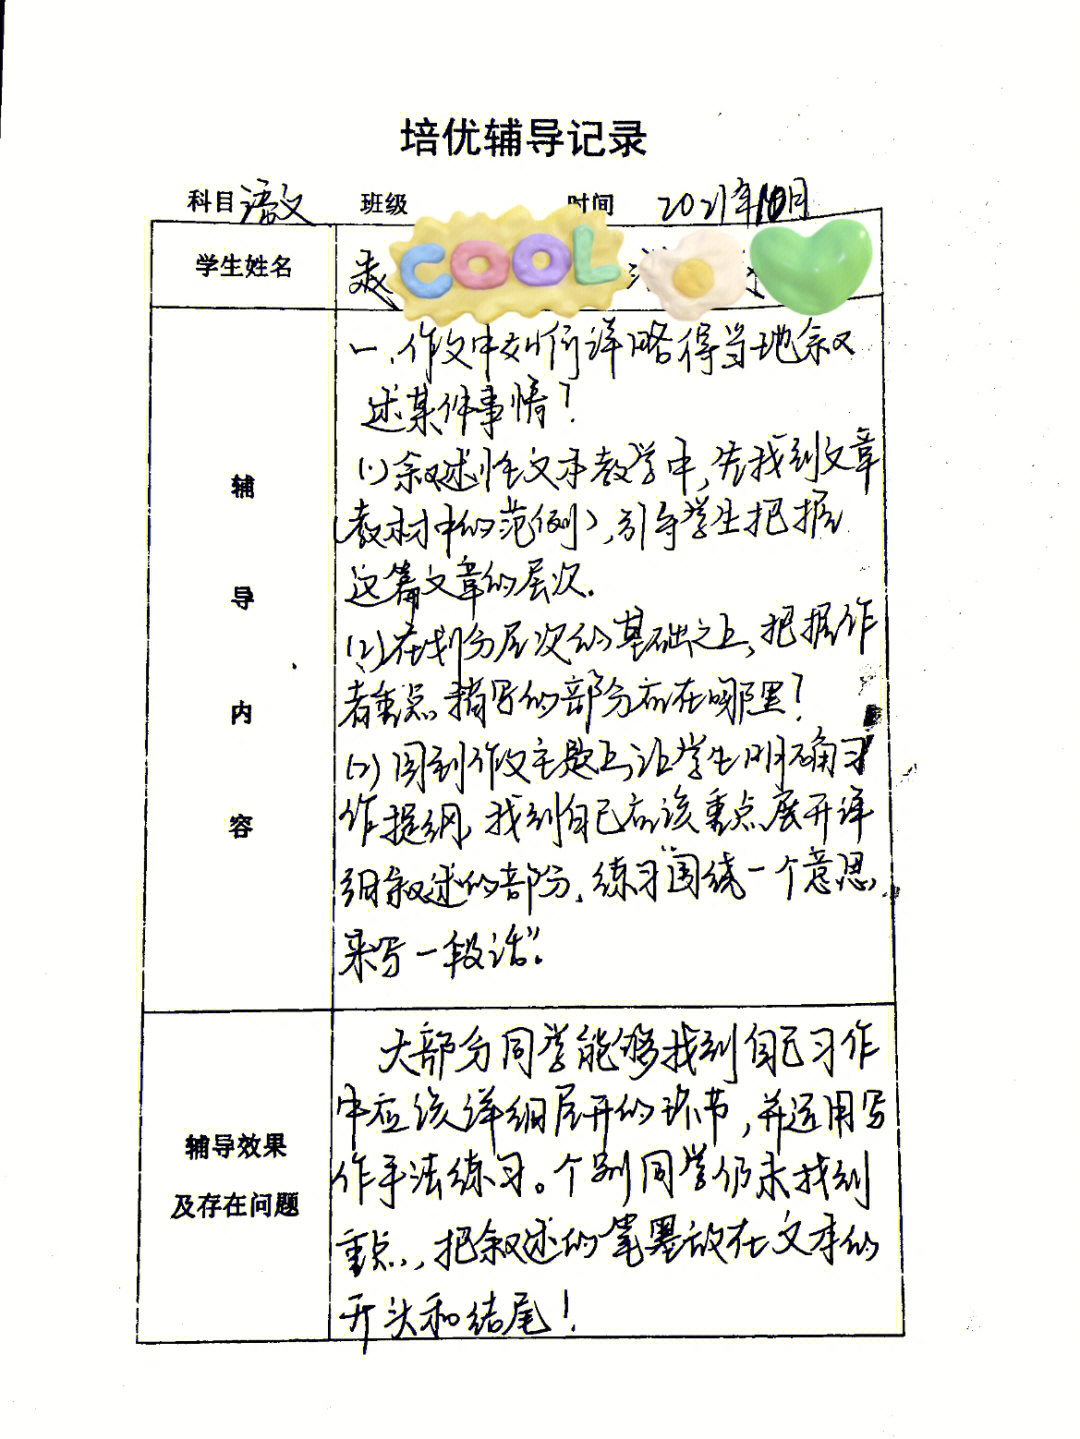 培优辅导记录
科目 语文 班级 时间 2021年10月
学生姓名
COOL
辅导内容
一、作文中如何详略得当地叙
述某件事情?
(1)叙述性文本教学中,先找到文章
(教材中的范例),引导学生把握
这篇文章的层次.
(2)在划分层次的基础之上,把握作
者重点描写的部分应在哪里?
(3)回到作文主题上,让学生明确习
作提纲,找到自己应该重点展开详
细叙述的部分,练习“围绕一个意思
来写一段话”.
辅导效果
及存在问题
大部分同学能够找到自己习作
中应该详细展开的环节,并运用写
作手法练习。个别同学仍未找到
重点,把叙述的笔墨放在文本的
开头和结尾!